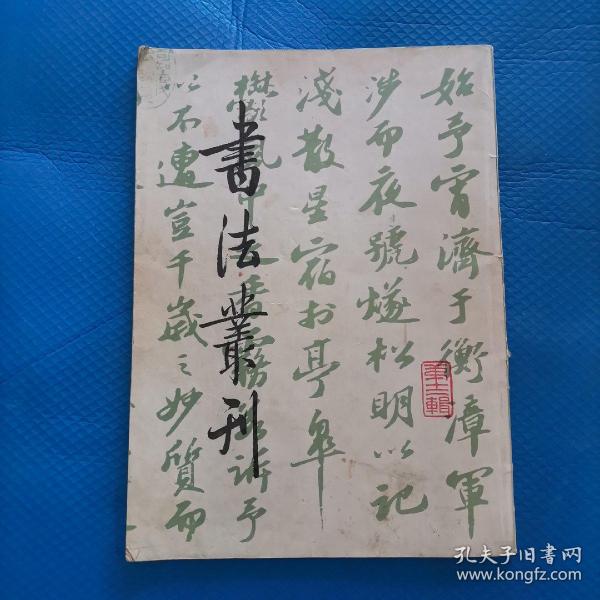 始予宵濟于衡漳軍
涉而夜號燧松明以記
淺散星宿於亭皋
鬱風中之香霧若訴予
以不遭豈千歲之妙質而
書法叢刊
孔夫子旧书网
www.kongfz.com